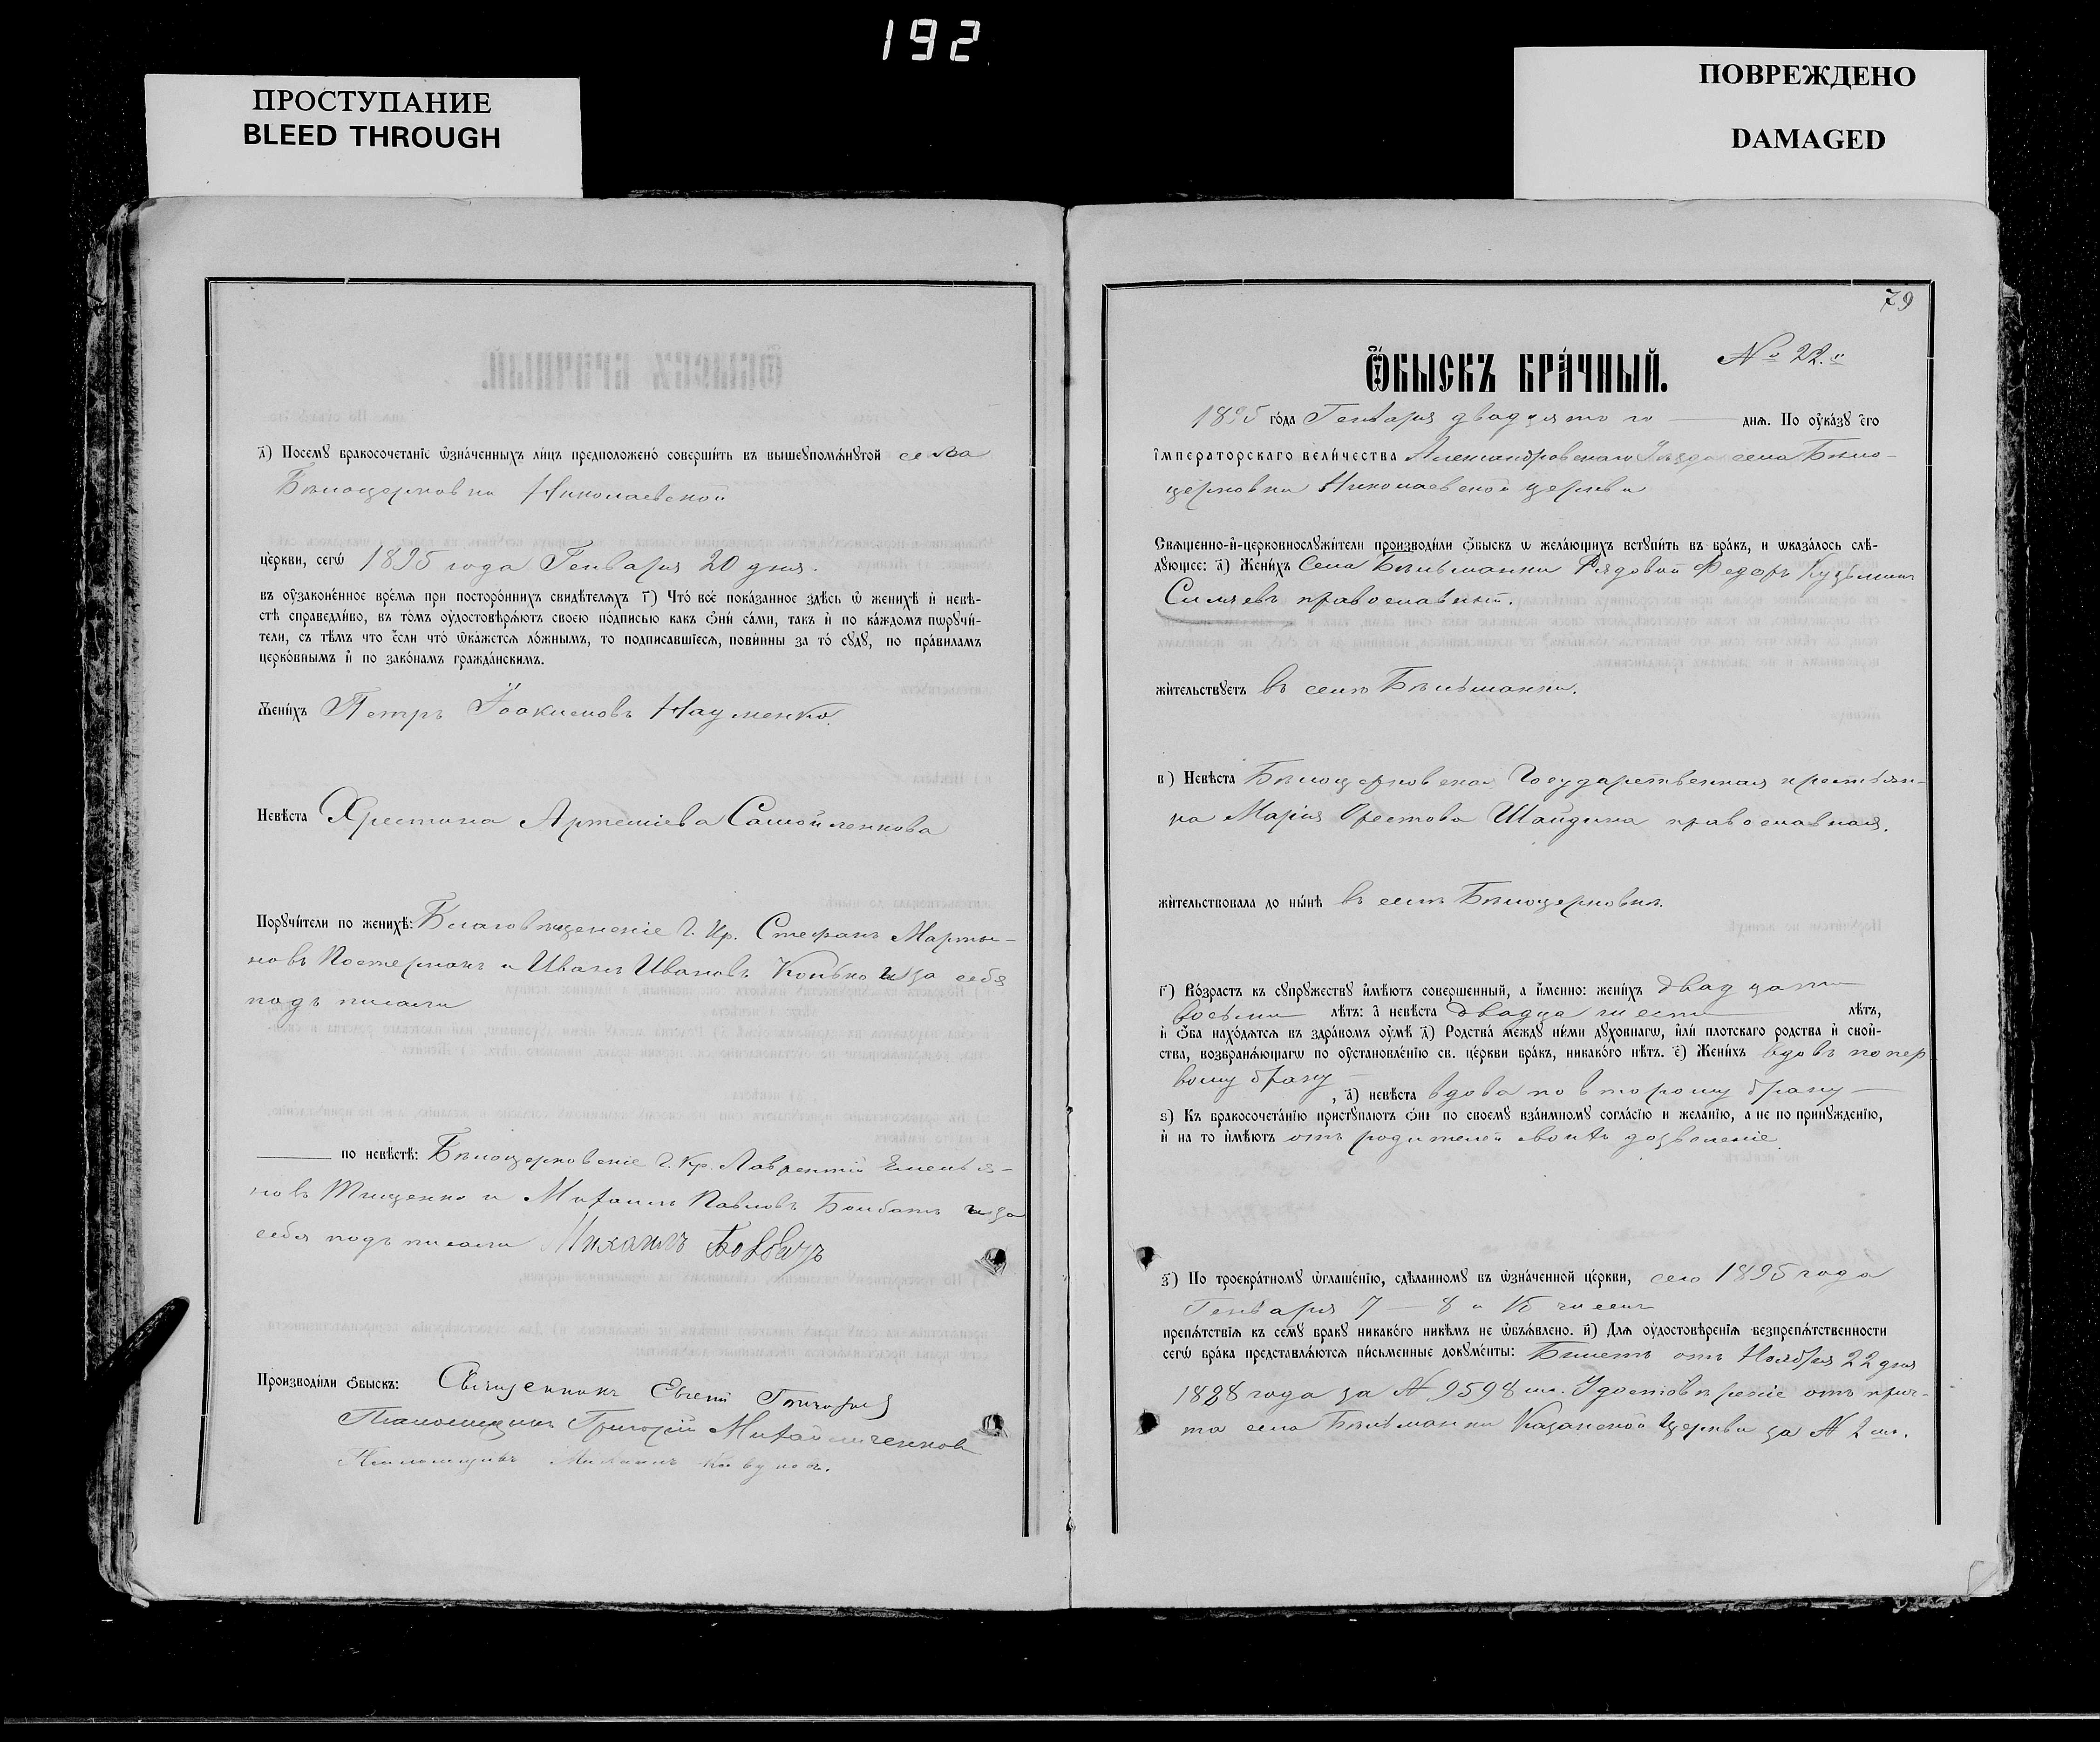 192
ПРОСТУПАНИЕ
BLEED THROUGH
ПОВРЕЖДЕНО
DAMAGED
а҃) Посемꙋ бракосочетаніе ѡзна́ченныхъ ли́цъ предположено̀ соверши́ть въ вышеꙋпомѧ́нꙋтой села
Бѣлоцерковки Николаевской
це́ркви, сегѡ̀ 1895 года Генваря 20 дня.
въ ᲂу҆зако́ненное вре́мѧ при посторо́ннихъ свидѣ́телѧхъ г҃) Что̀ всѐ пока́занное здѣ́сь ѡ҆ женихѣ̀ и҆ невѣ́-
стѣ справедли́во, въ то́мъ ᲂу҆достовѣрѧ́ютъ свое́ю по́дписью какъ ѻ҆нѝ са́ми, такъ и҆ по ка́ждомъ порꙋчи́-
тели, съ тѣ́мъ что є҆́сли что̀ ѡ҆ка́жетсѧ ло́жнымъ, то подписавшіесѧ, пови́нны за то̀ сꙋдꙋ̀, по пра́виламъ
церко́внымъ и҆ по зако́намъ гражда́нскимъ.
Жени́хъ Петръ Іоакимовъ Науменко.
Невѣ́ста Хрестина Артеміева Самойленкова
Порꙋчи́тели по женихѣ̀: Благовѣщенскіе Г. Кр. Стефанъ Марты-
новъ и Иванъ Ивановъ и за себя
подъ писали
по невѣ́стѣ: Бѣлоцерковскіе Г. Кр. Лаврентій Емелья-
новъ Тищенко и Михаилъ Павловъ Бовбатъ и за
себя подъ писали Михаилъ
Производи́ли ѻ҆́быскъ: Священникъ Евгеній
Псаломщикъ Григорій Михайличенков
Псаломщикъ Михаилъ
79
Ѻ҆́БЫСКЪ БРА́ЧНЫЙ. № 22.й
1895 го́да Генваря двадцято го днѧ. По ᲂу҆ка́зꙋ є҆гѡ̀
і҆мператорскаго вели́чества Александровскаго Уѣзда села Бѣло-
церковки Николаевской церкви
Свѧще́нно-и҆-церковнослꙋжи́тели производи́ли ѻ҆́быскъ ѡ҆ жела́ющихъ встꙋпи́ть въ бра́къ, и ѡ҆каза́лось слѣ́-
дꙋющее: а҃) Жени́хъ села Бѣльманки Рядовой Федоръ Кузьминъ
Силяевъ православный.
жи́тельствꙋетъ въ селѣ Бѣльманки.
в҃) Невѣ́ста Бѣлоцерковская Государственная крестьян-
ка Марія Орестова Шайдина православная.
жи́тельствовала до ны́нѣ въ селѣ Бѣлоцерковки.
г҃) Во́зрастъ къ сꙋпрꙋ́жествꙋ и҆мѣ́ютъ соверше́нный, а и҆́менно: жени́хъ двадцати
восьми лѣ́тъ: а҆ невѣ́ста двадца шести лѣ́тъ,
и҆ ѻ҆́ба нахо́дѧтсѧ въ здра́вомъ ᲂу҆мѣ̀ д҃) Родства̀ мéждꙋ ни́ми дꙋхо́внагѡ, и҆лѝ пло́тскаго родства̀ и҆ свой-
ства̀, возбранѧ́ющагѡ по ᲂу҆становле́нію св. це́ркви бра́къ, никако́го нѣ́тъ. є҃) Жени́хъ вдовъ по пер
вому браку, а҃) невѣ́ста вдова по второму браку
ѕ҃) Къ бракосочета́нію пристꙋпа́ютъ ѻ҆нѝ по своемꙋ̀ взаи́мномꙋ согла́сію и жела́нію, а не по принꙋжде́нію,
и҆ на то и҆мѣ́ютъ отъ родителей своихъ дозволеніе.
з҃) По троекра́тномꙋ ѡ҆глаше́нію, сдѣ́ланномꙋ въ ѡ҆зна́ченной це́ркви, сего 1895 года
Генваря 7 — 8 и 15 чиселъ
препѧ́тствїѧ къ семꙋ̀ бракꙋ никако́го никѣ́мъ не ѡ҆бъѧ́влено. и҃) Длѧ ᲂу҆достовѣ́ренїѧ безпрепѧ́тственности
сегѡ̀ бра́ка представлѧ́ютсѧ пи́сьменные докꙋме́нты: Билетъ отъ Ноября 22 дня
1828 года за № 9598 мъ. Удостовѣреніе отъ прич-
та села Бѣльманки Казанской церкви за № 2 мъ.